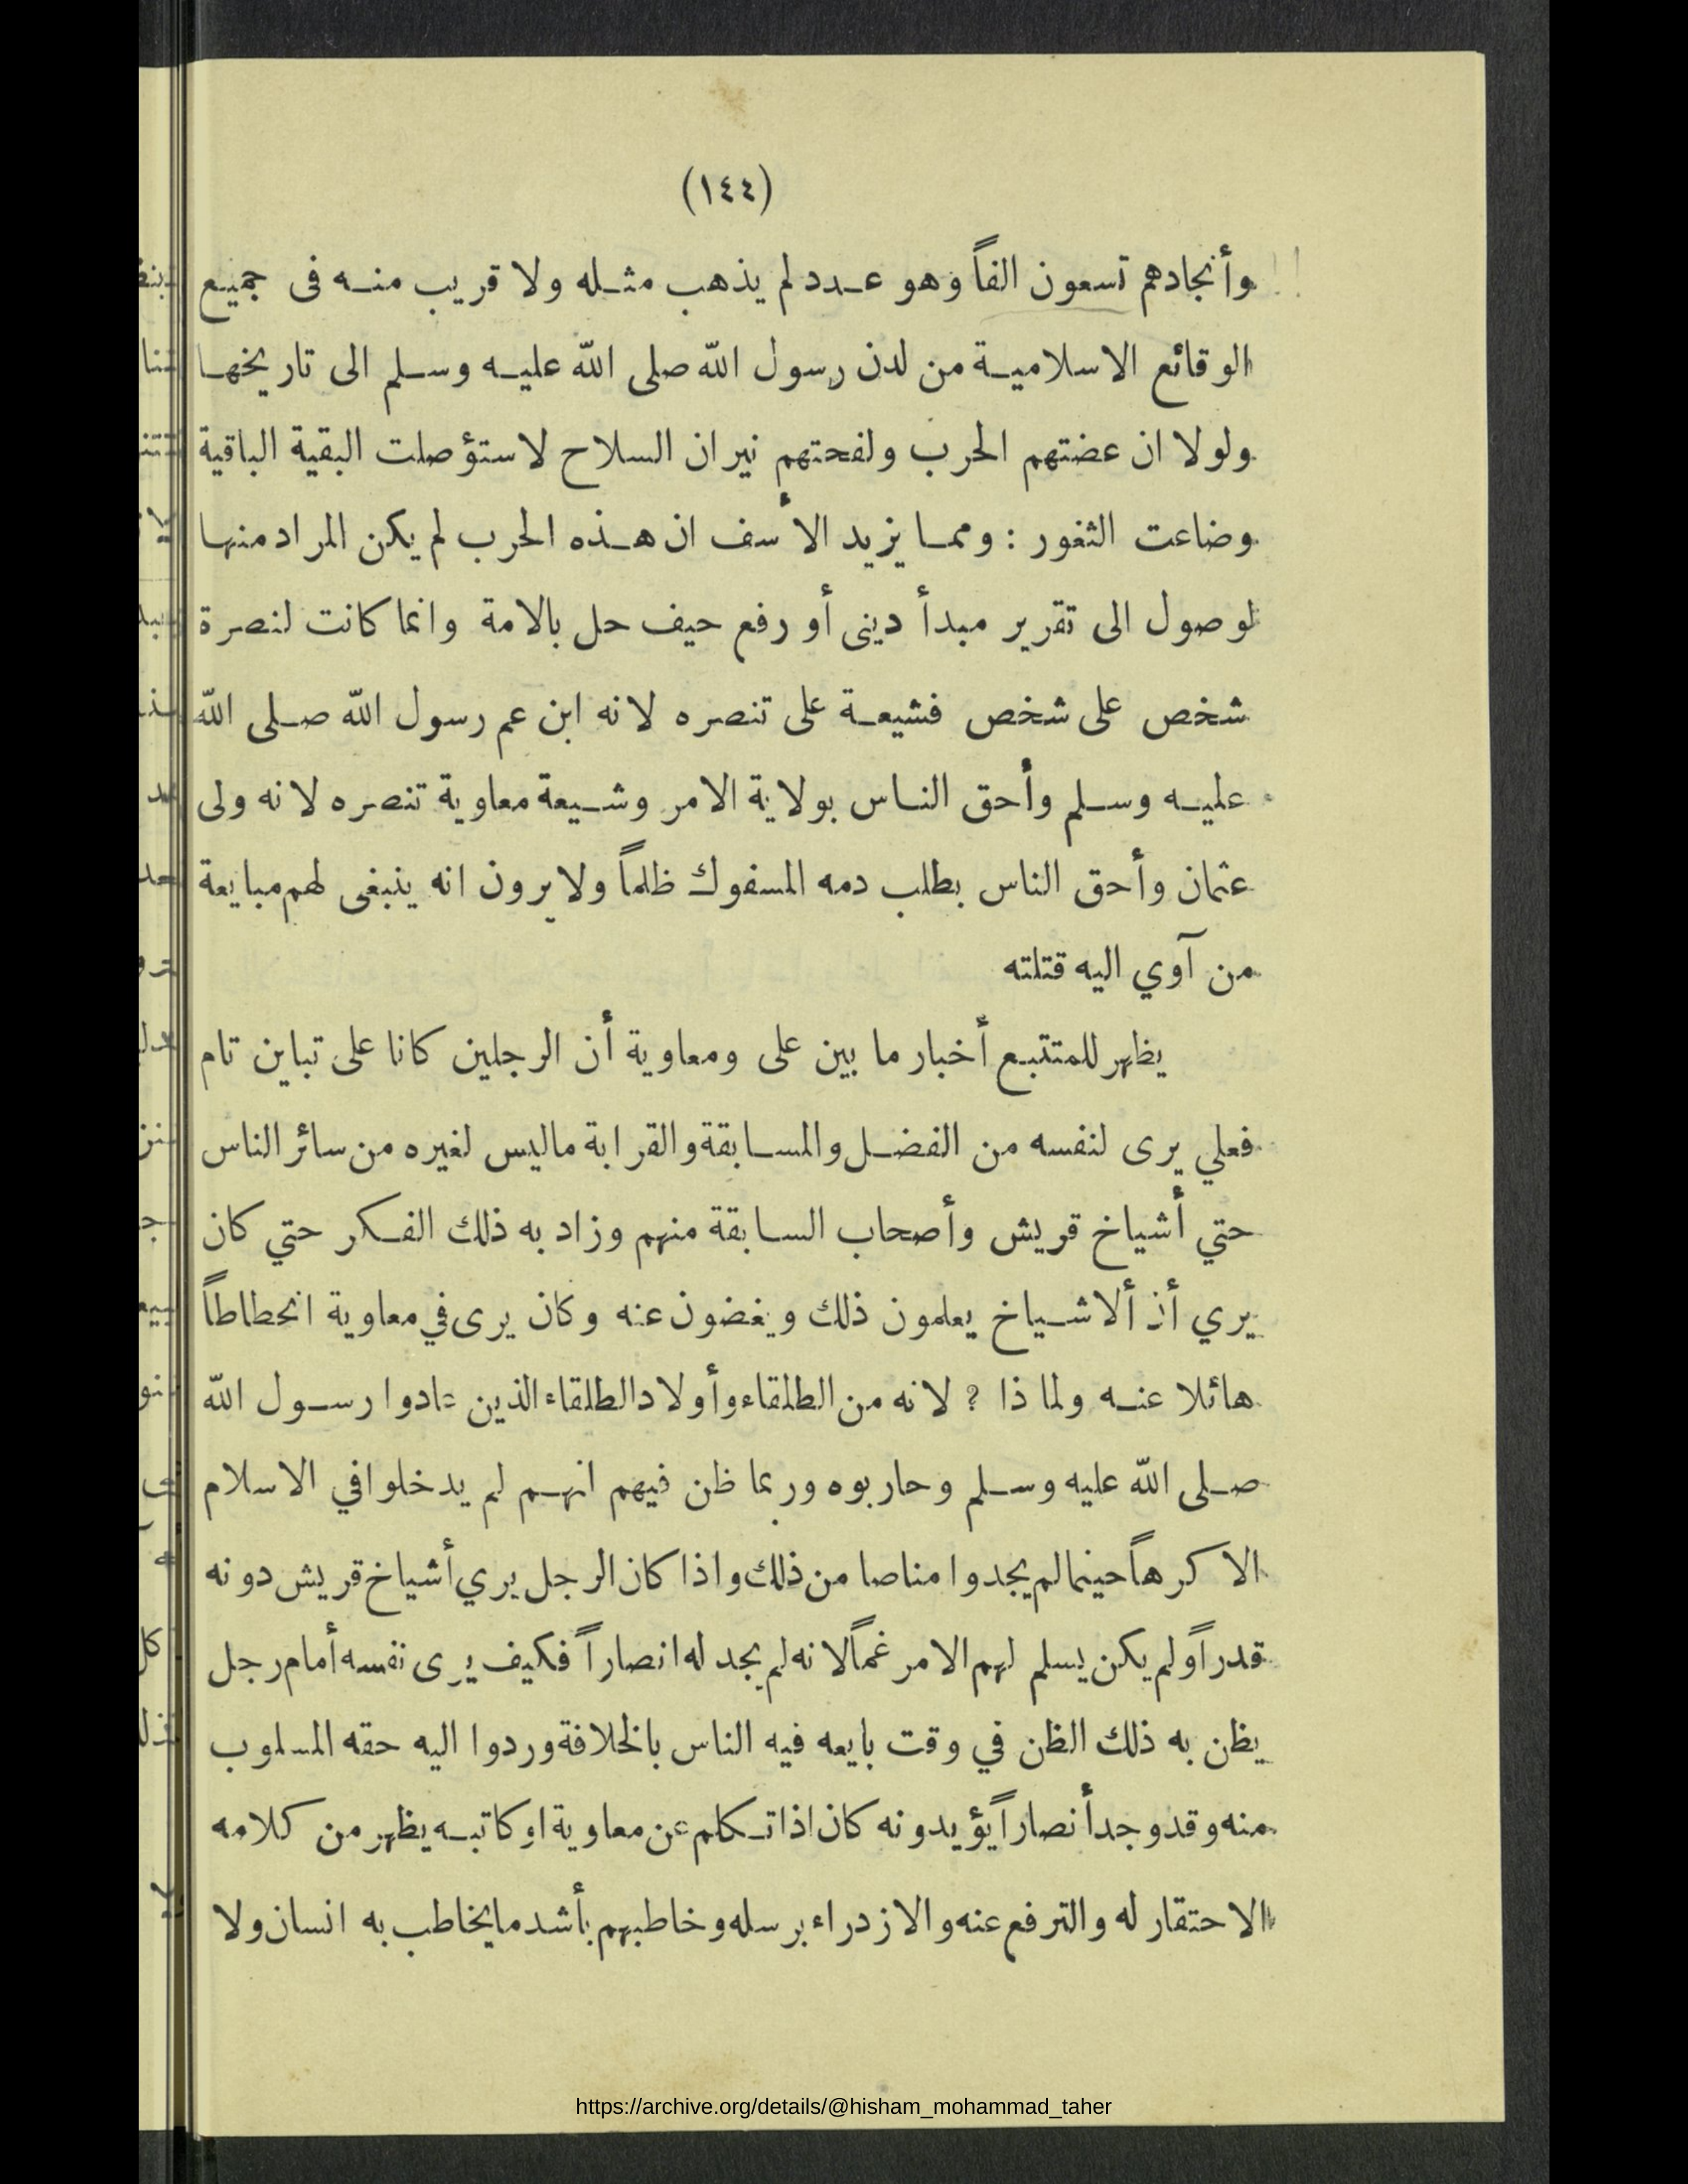 (١٤٤)
وأنجادهم تسعون الفاً وهو عدد لم يذهب مثله ولا قريب منه فى جميع
الوقائع الاسلامية من لدن رسول الله صلى الله عليه وسلم الى تاريخها
ولولا ان عضتهم الحرب ولفحتهم نيران السلاح لاستؤصلت البقية الباقية
وضاعت الثغور : ومما يزيد الأسف ان هذه الحرب لم يكن المراد منها
لوصول الى تقرير مبدأ دينى أو رفع حيف حل بالامة وانما كانت لنصرة
شخص على شخص فشيعة على تنصره لانه ابن عم رسول الله صلى الله
عليه وسلم وأحق الناس بولاية الامر وشيعة معاوية تنصره لانه ولى
عثمان وأحق الناس بطلب دمه المسفوك ظلماً ولا يرون انه ينبغى لهم مبايعة
من آوي اليه قتلته
يظهر للمتتبع أخبار ما بين على ومعاوية أن الرجلين كانا على تباين تام
فعلي يرى لنفسه من الفضل والمسابقة والقرابة ماليس لغيره من سائر الناس
حتي أشياخ قريش وأصحاب السابقة منهم وزاد به ذلك الفكر حتي كان
يري أن ألاشياخ يعلمون ذلك ويغضون عنه وكان يرى في معاوية انحطاطاً
هائلا عنه ولما ذا ؟ لانه من الطلقاء وأولاد الطلقاء الذين عادوا رسول الله
صلى الله عليه وسلم وحاربوه وربما ظن فيهم انهم لم يدخلوا في الاسلام
الا كرهاً حينما لم يجدوا مناصا من ذلك واذا كان الرجل يري أشياخ قريش دونه
قدراً ولم يكن يسلم لهم الامر غماً لانه لم يجد له انصاراً فكيف يرى نفسه أمام رجل
يظن به ذلك الظن في وقت بايعه فيه الناس بالخلافة وردوا اليه حقه المسلوب
منه وقد وجد أنصاراً يؤيدونه كان اذا تكلم عن معاوية او كاتبه يظهر من كلامه
الاحتقار له والترفع عنه والازدراء برسله وخاطبهم بأشد ما يخاطب به انسان ولا
https://archive.org/details/@hisham_mohammad_taher